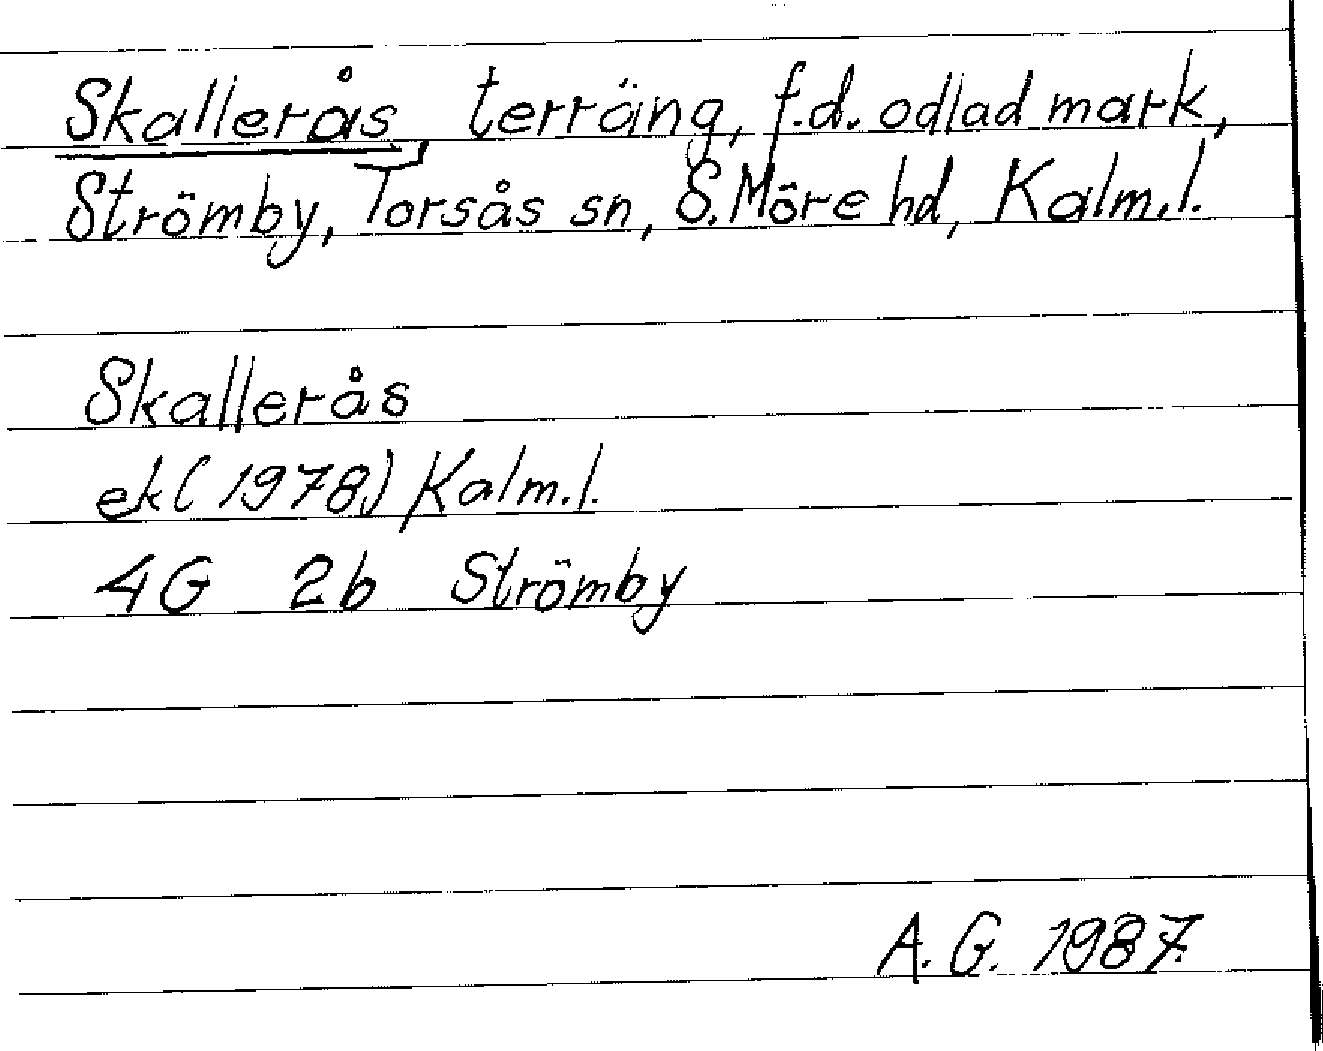 Skallerås, terräng, f.d. odlad mark,
Strömby, Torsås sn, S. Möre hd, Kalm.l.
Skallerås
ek (1978) Kalm.l.
4G 2b Strömby
A. G. 1987.